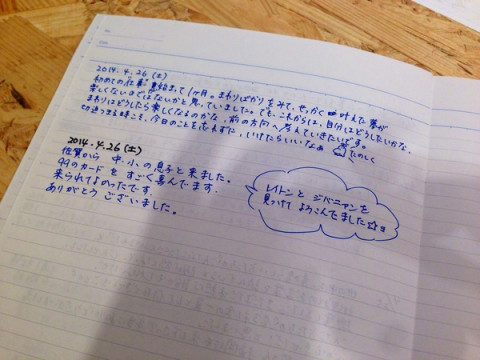 No.
Date
2014.4.26(土)
初めての仕事が始まって1ヶ月。まわりばかりをみて、せっかく叶えた夢が
楽しくないのではないかと思っていました。でも、これからは、自分はどうしたいかな、
まわりはどうしたら楽しくなるのかな、前の方向へ考えていきたいです。
切迫つまる時こそ、今日のことを忘れずに、いけたらいいなぁ たのしく
2014.4.26(土)
佐賀から 中、小の息子と来ました。
99のカードを すごく喜んでます.
来られてよかったです.
ありがとう ございました。
レイトンと ジバニャンを
見つけて よろこんでました☆ヨ